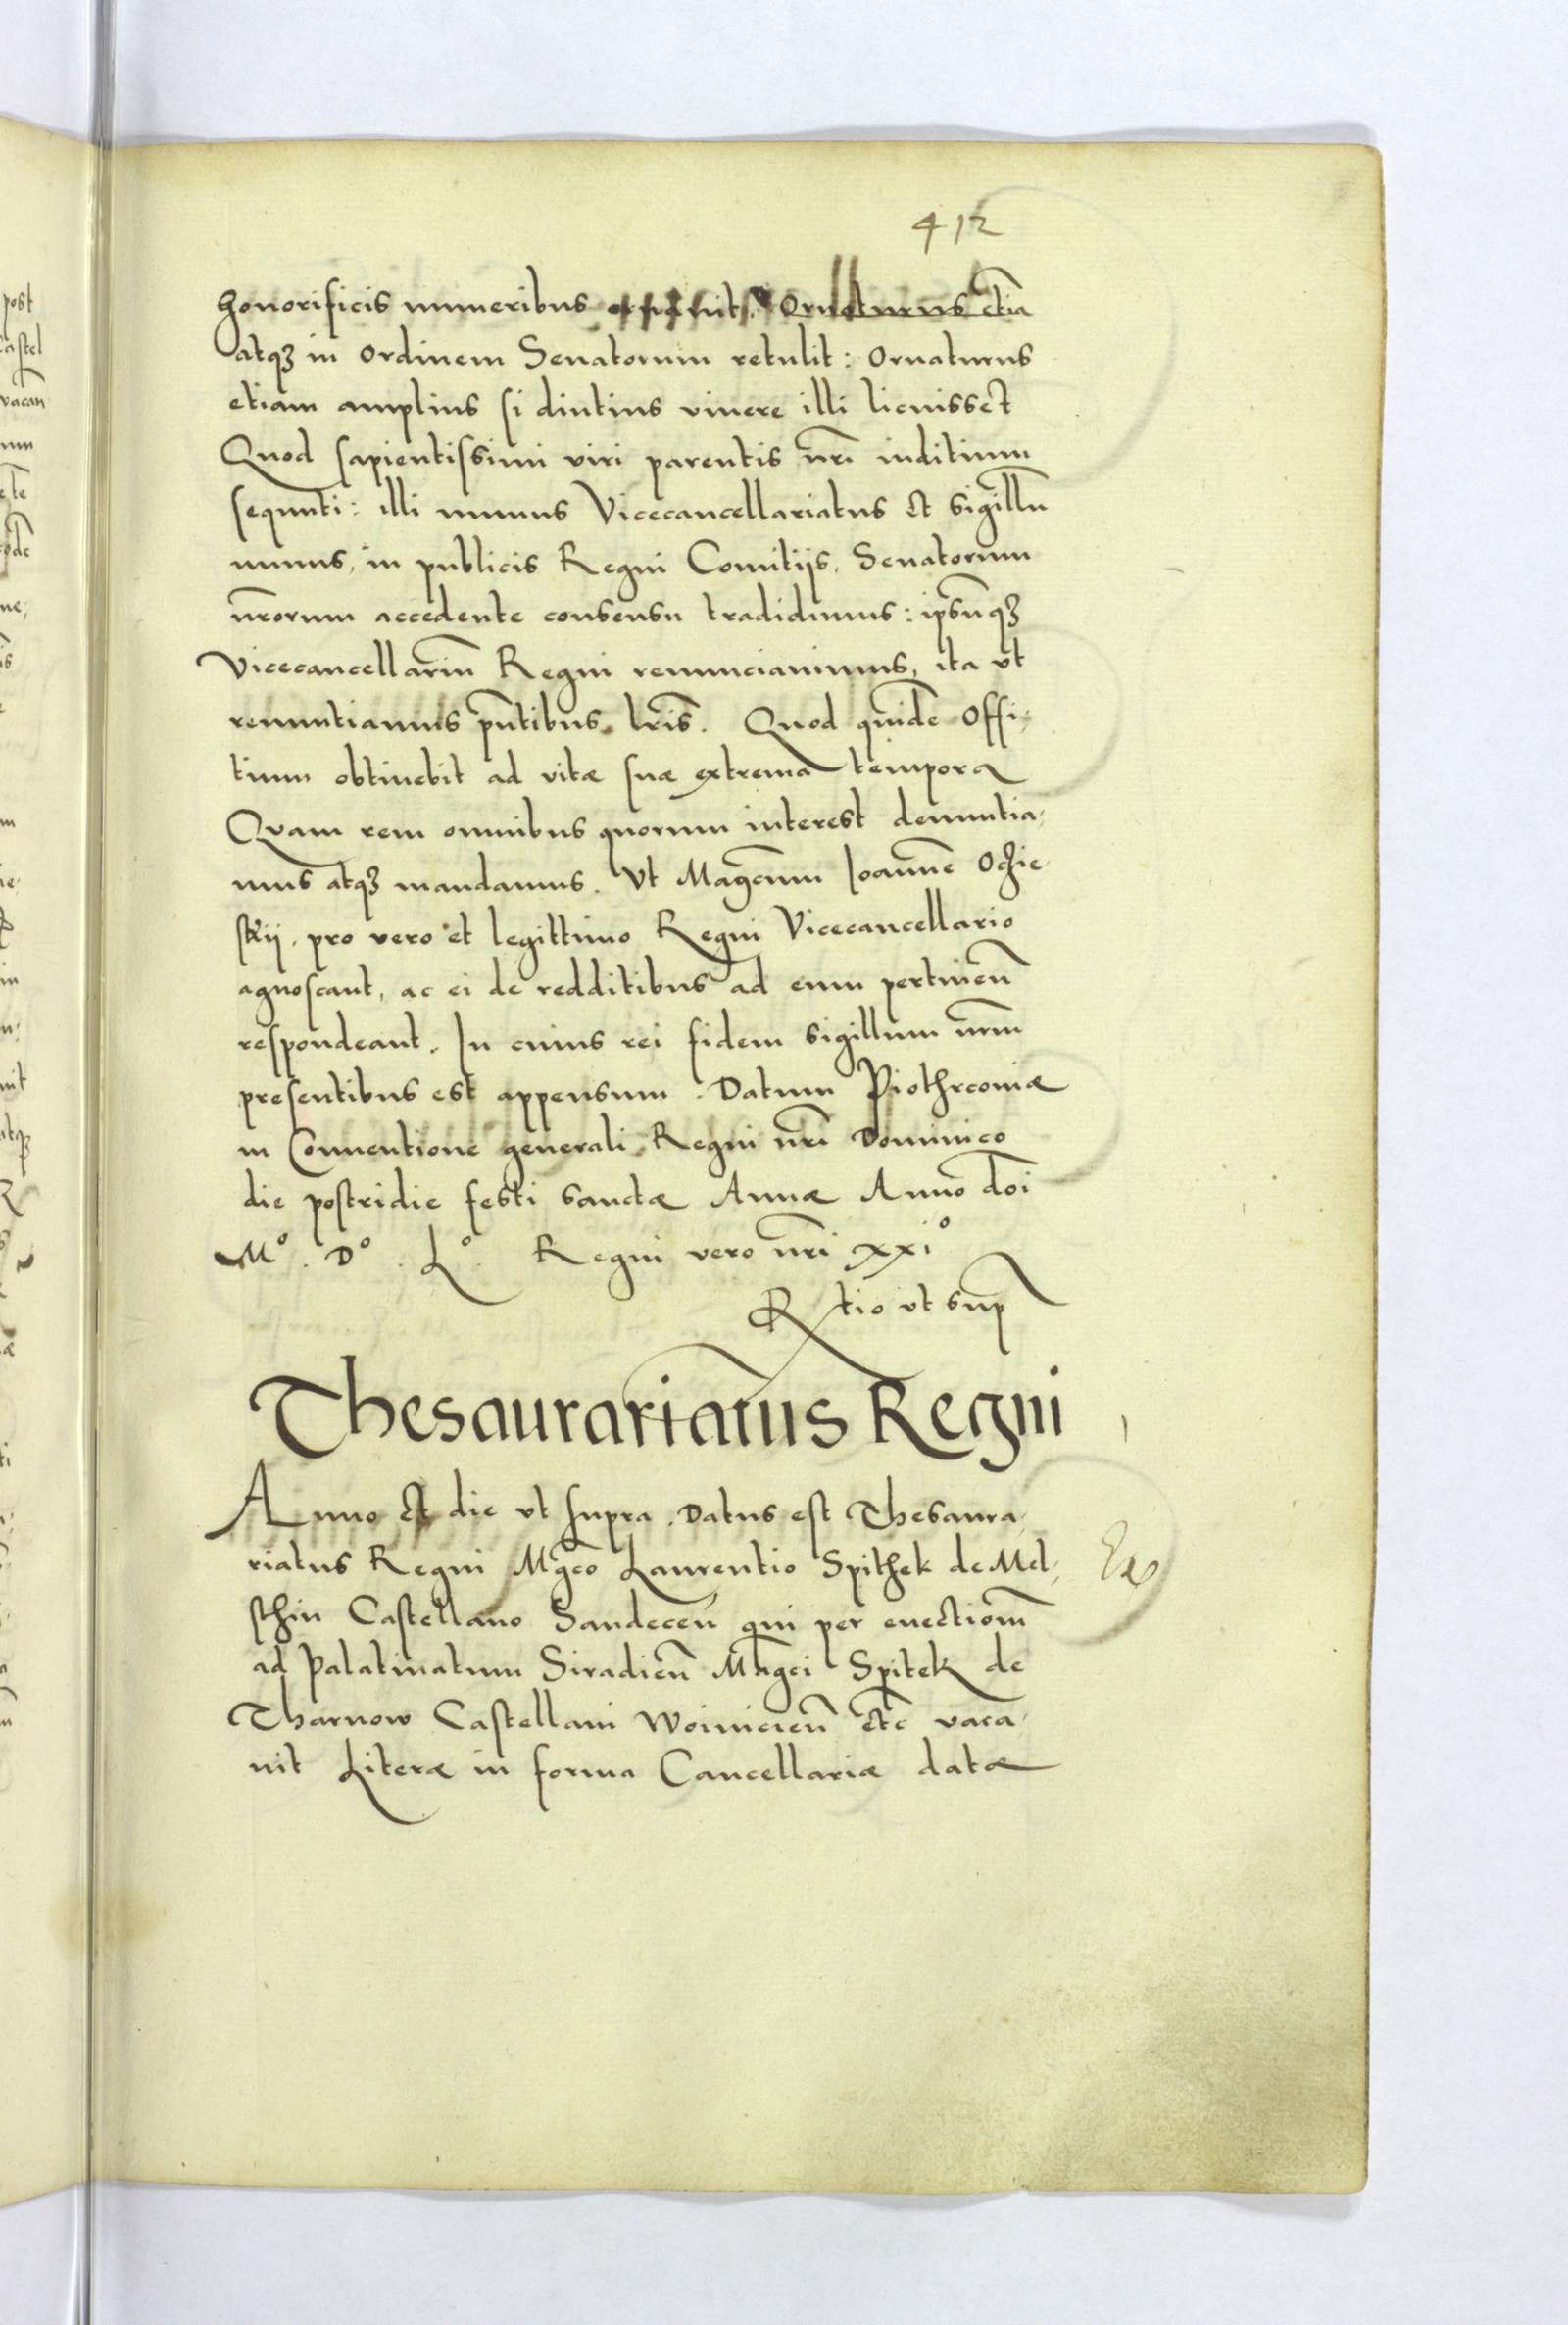 412
honorificis muneribus Ornaturus etiā
atqȝ in Ordinem Senatorum retulit: Ornaturus
etiam amplius si diutius viuere illi licuisset
Quod sapientissimi viri parentis nrī inditium
sequuti: illi munus Vicecancellariatus et sigillū
minus, in publicis Regni Comitijs, Senatorum
nr̄orum accedente consensu tradidimus: ipsūqȝ
Vicecancellariū Regni renunciauimus, ita vt
renuntiamus pn̄tibus lr̄is. Quod quidē Offi-
tium obtinebit ad vitæ suæ extrema tempora
Quam rem omnibus quorum interest denuntia-
mus atqȝ mandamus. Vt Magc̄um Ioannē Oczie-
skij. pro vero et legittimo Regni Vicecancellario
agnoscant, ac ei de redditibus ad eum pertineñ
respondeant. In cuius rei fidem sigillum nr̄m
presentibus est appensum. Datum Piothrconiæ
in Conuentione generali Regni nrī Dominico
die postridie festi sanctæ Annæ Anno doī
Mº. Dº. Lº. Regni vero nrī xxiº
Rtio vt sup
Thesaurariatus Regni
Anno et die vt supra. Datus est Thesaura-
riatus Regni Mgc̄o Laurentio Spithek de Mel-
sthin Castellano Sandeceñ qui per euectionē
ad Palatinatum Siradieñ Mag̃ci Spitek de
Tharnow Castellani Woinicieñ etc̄ vaca-
uit Literæ in forma Cancellariæ datæ